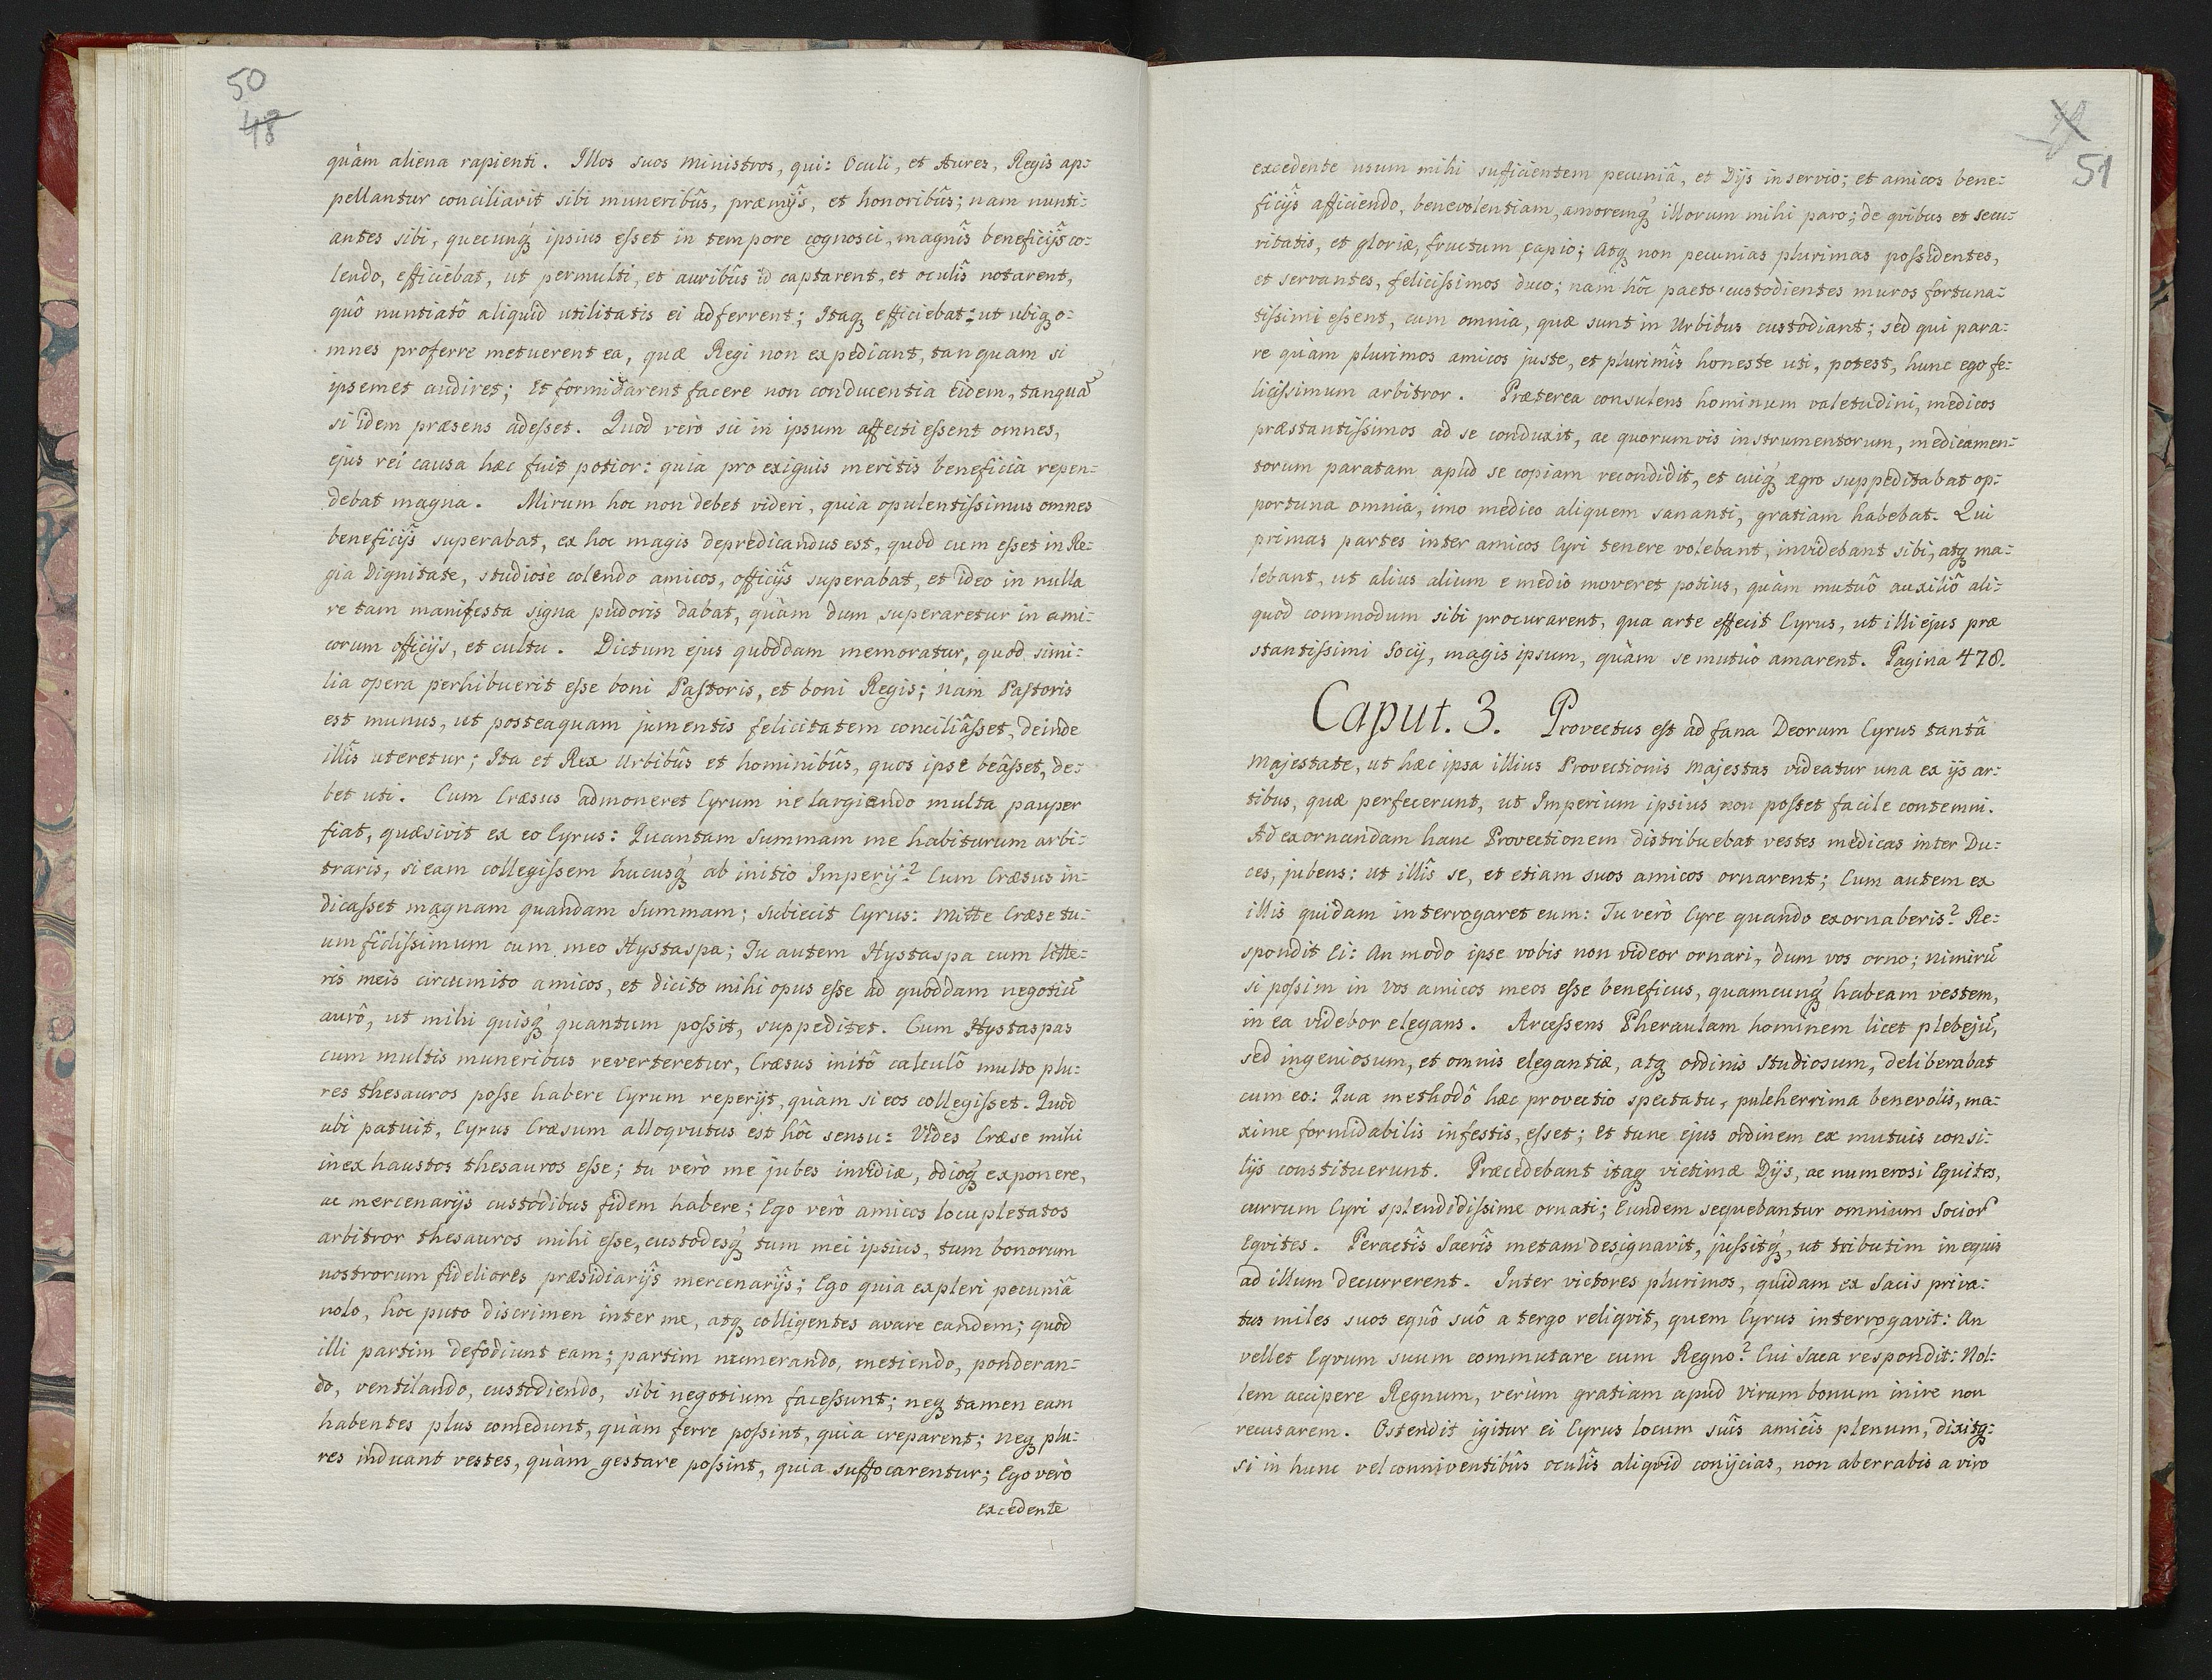 50
48
quàm aliena rapienti. Illos suos Ministros, qui: Oculi, et Aures, Regis ap:
pellantur conciliavit sibi muneribûs, præmijs, et honoribûs; nam nunti:
antes sibi, quecunq́ ipsius eſset in tempore cognosci, magnîs beneficijs co:
lendo, efficiebat, ut permulti, et auribûs id captarent, et oculîs notarent,
quô nuntiatô aliquid utilitatis ei adferrent; Itaq efficiebat: ut ubiq o:
mnes proferre metuerent ea, quæ Regi non expediant, tanquam si
ipsemet audiret; Et formidarent facere non conducentia eidem, tanquã
si idem præsens adeſset. Quod verò sic in ipsum affecti eſsent omnes,
ejus rei causa hæc fuit potior: quia pro exiguis meritis beneficia repen:
debat magna. Mirum hoc non debet videri, quia opulentiſsimus omnes
beneficijs superabat, ex hoc magis depredicandus est, quòd cum eſset in Re:
gia Dignitate, studiosè colendo amicos, officijs superabat, et ideo in nulla
re tam manifesta signa pudoris dabat, quàm dum superaretur in ami:
corum officijs, et cultu. Dictum ejus quoddam memoratur, quod simi:
lia opera perhibuerit eſse boni Paſtoris, et boni Regis; nam Pastoris
est munus, ut posteaquam jumentis felicitatem conciliâſset, deinde
illîs uteretur; Ita et Rex Urbibûs et hominibûs, quos ipse beâſset, de:
bet uti. Cum Cræsus admoneret Cyrum ne largiendo multa pauper
fiat, quæsivit ex eo Cyrus: Quantam summam me habiturum arbi:
traris, si eam collegiſsem hucusq́ ab initio Imperij? Cum Cræsus in:
dicaſset magnam quandam summam; subiecit Cyrus: Mitte Cræse tu:
um fidiſsimum cum meo Hystaspa; Tu autem Hystaspa cum litte:
ris meis circumito amicos, et dicito mihi opus eſse ad quoddam negotiũ
aurô, ut mihi quisq́ quantum poſsit, suppeditet. Cum Hystaspas
cum multis muneribus reverteretur, Cræsus initô calculô multo plu:
res thesauros poſse habere Cyrum reperijt, quàm si eos collegiſset. Quod
ubi patuit, Cyrus Cræsum alloqvutus est hôc sensu: Vides Cræse mihi
inexhaustos thesauros eſse; tu verò me jubes invidiæ, odioq́ exponere,
ac mercenarijs custodibus fidem habere; Ego verò amicos locupletatos
arbitror thesauros mihi eſse, custodesq́ tum mei ipsius, tum bonorum
nostrorum fideliores præsidiarijs mercenarijs; Ego quia expleri pecuniâ
nolo, hoc puto discrimen inter me, atq colligentes avare eandem; quod
illi partim defodiunt eam; partim numerando, metiendo, ponderan:
do, ventilando, custodiendo, sibi negotium faceſsunt; neq tamen eam
habentes plus comedunt, quàm ferre poſsint, quia creparent; neq plu:
res induant vestes, quàm gestare poſsint, quia suffocarentur; Ego verò
excedente
51
excedente usum mihi sufficientem pecuniâ, et Dijs inservio; et amicos bene:
ficijs afficiendo, benevolentiam, amoremq́ illorum mihi paro; de qvibus et secu:
ritatis, et gloriæ, fructum capio; Atq non pecunias plurimas poſsidentes,
et servantes, feliciſsimos duco; nam hôc pacto custodientes muros fortuna:
tiſsimi eſsent, cum omnia, quæ sunt in Urbibus custodiant; sed qui para:
re quàm plurimos amicos juste, et plurimîs honeste uti, potest, hunc ego fe:
liciſsimum arbitror. Præterea consulens hominum valetudini, medicos
præstantiſsimos ad se conduxit, ac quorumvis instrumentorum, medicamen:
torum paratam apud se copiam recondidit, et cuiq́ ægro suppeditabat op:
portuna omnia, imo medico aliquem sananti, gratiam habebat. Qui
primas partes inter amicos Cyri tenere volebant, invidebant sibi, atq ma:
lebant, ut alius alium e medio moveret potius, quàm mutuô auxiliô ali:
quod commodum sibi procurarent, qua arte effecit Cyrus, ut illi ejus præ
stantiſsimi Socij, magis ipsum, quàm se mutuò amarent. Pagina 478.
Caput. 3. Provectus eſt ad fana Deorum Cyrus tantâ
Majestate, ut hæc ipsa illius Provectionis Majestas videatur una ex ijs ar:
tibus, quæ perfecerunt, ut Imperium ipsius non poſset facile contemni.
Ad exornandam hanc Provectionem distribuebat vestes medicas inter Du:
ces, jubens: ut illîs se, et etiam suos amicos ornarent; Cum autem ex
illis quidam interrogaret eum: Tu verò Cyre quando exornaberis? Re:
spondit Ei: An modo ipse vobis non videor ornari, dum vos orno; nimirũ
si poſsim in vos amicos meos eſse beneficus, quamcunq́ habeam vestem,
in ea videbor elegans. Arceſsens Pheraulam hominem licet plebejũ,
sed ingeniosum, et omnis elegantiæ, atq ordinis studiosum, deliberabat
cum eo: Qua methodô hæc provectio spectatu, pulcherrima benevolis, ma:
xime formidabilis infestis, eſset; Et tunc ejus ordinem ex mutuis consi:
lijs constituerunt. Præcedebant itaq victimæ Dijs, ac numerosi Equites,
currum Cyri splendidiſsime ornati; Eundem sequebantur omnium Socior
Eqvites. Peractîs Sacrîs metam designavit, juſsitq́, ut tributim in equis
ad illum decurrerent. Inter victores plurimos, quidam ex Sacis priva:
tus miles suos equô suô a tergo reliqvit, quem Cyrus interrogavit: An
vellet Eqvum suum commutare cum Regno? Cui Saca respondit: Nol:
lem accipere Regnum, verùm gratiam apud virum bonum inire non
recusarem. Ostendit igitur ei Cyrus locum suîs amicîs plenum, dixitq:
si in hunc vel conniventibûs oculîs aliqvid conijcias, non aberrabis a viro